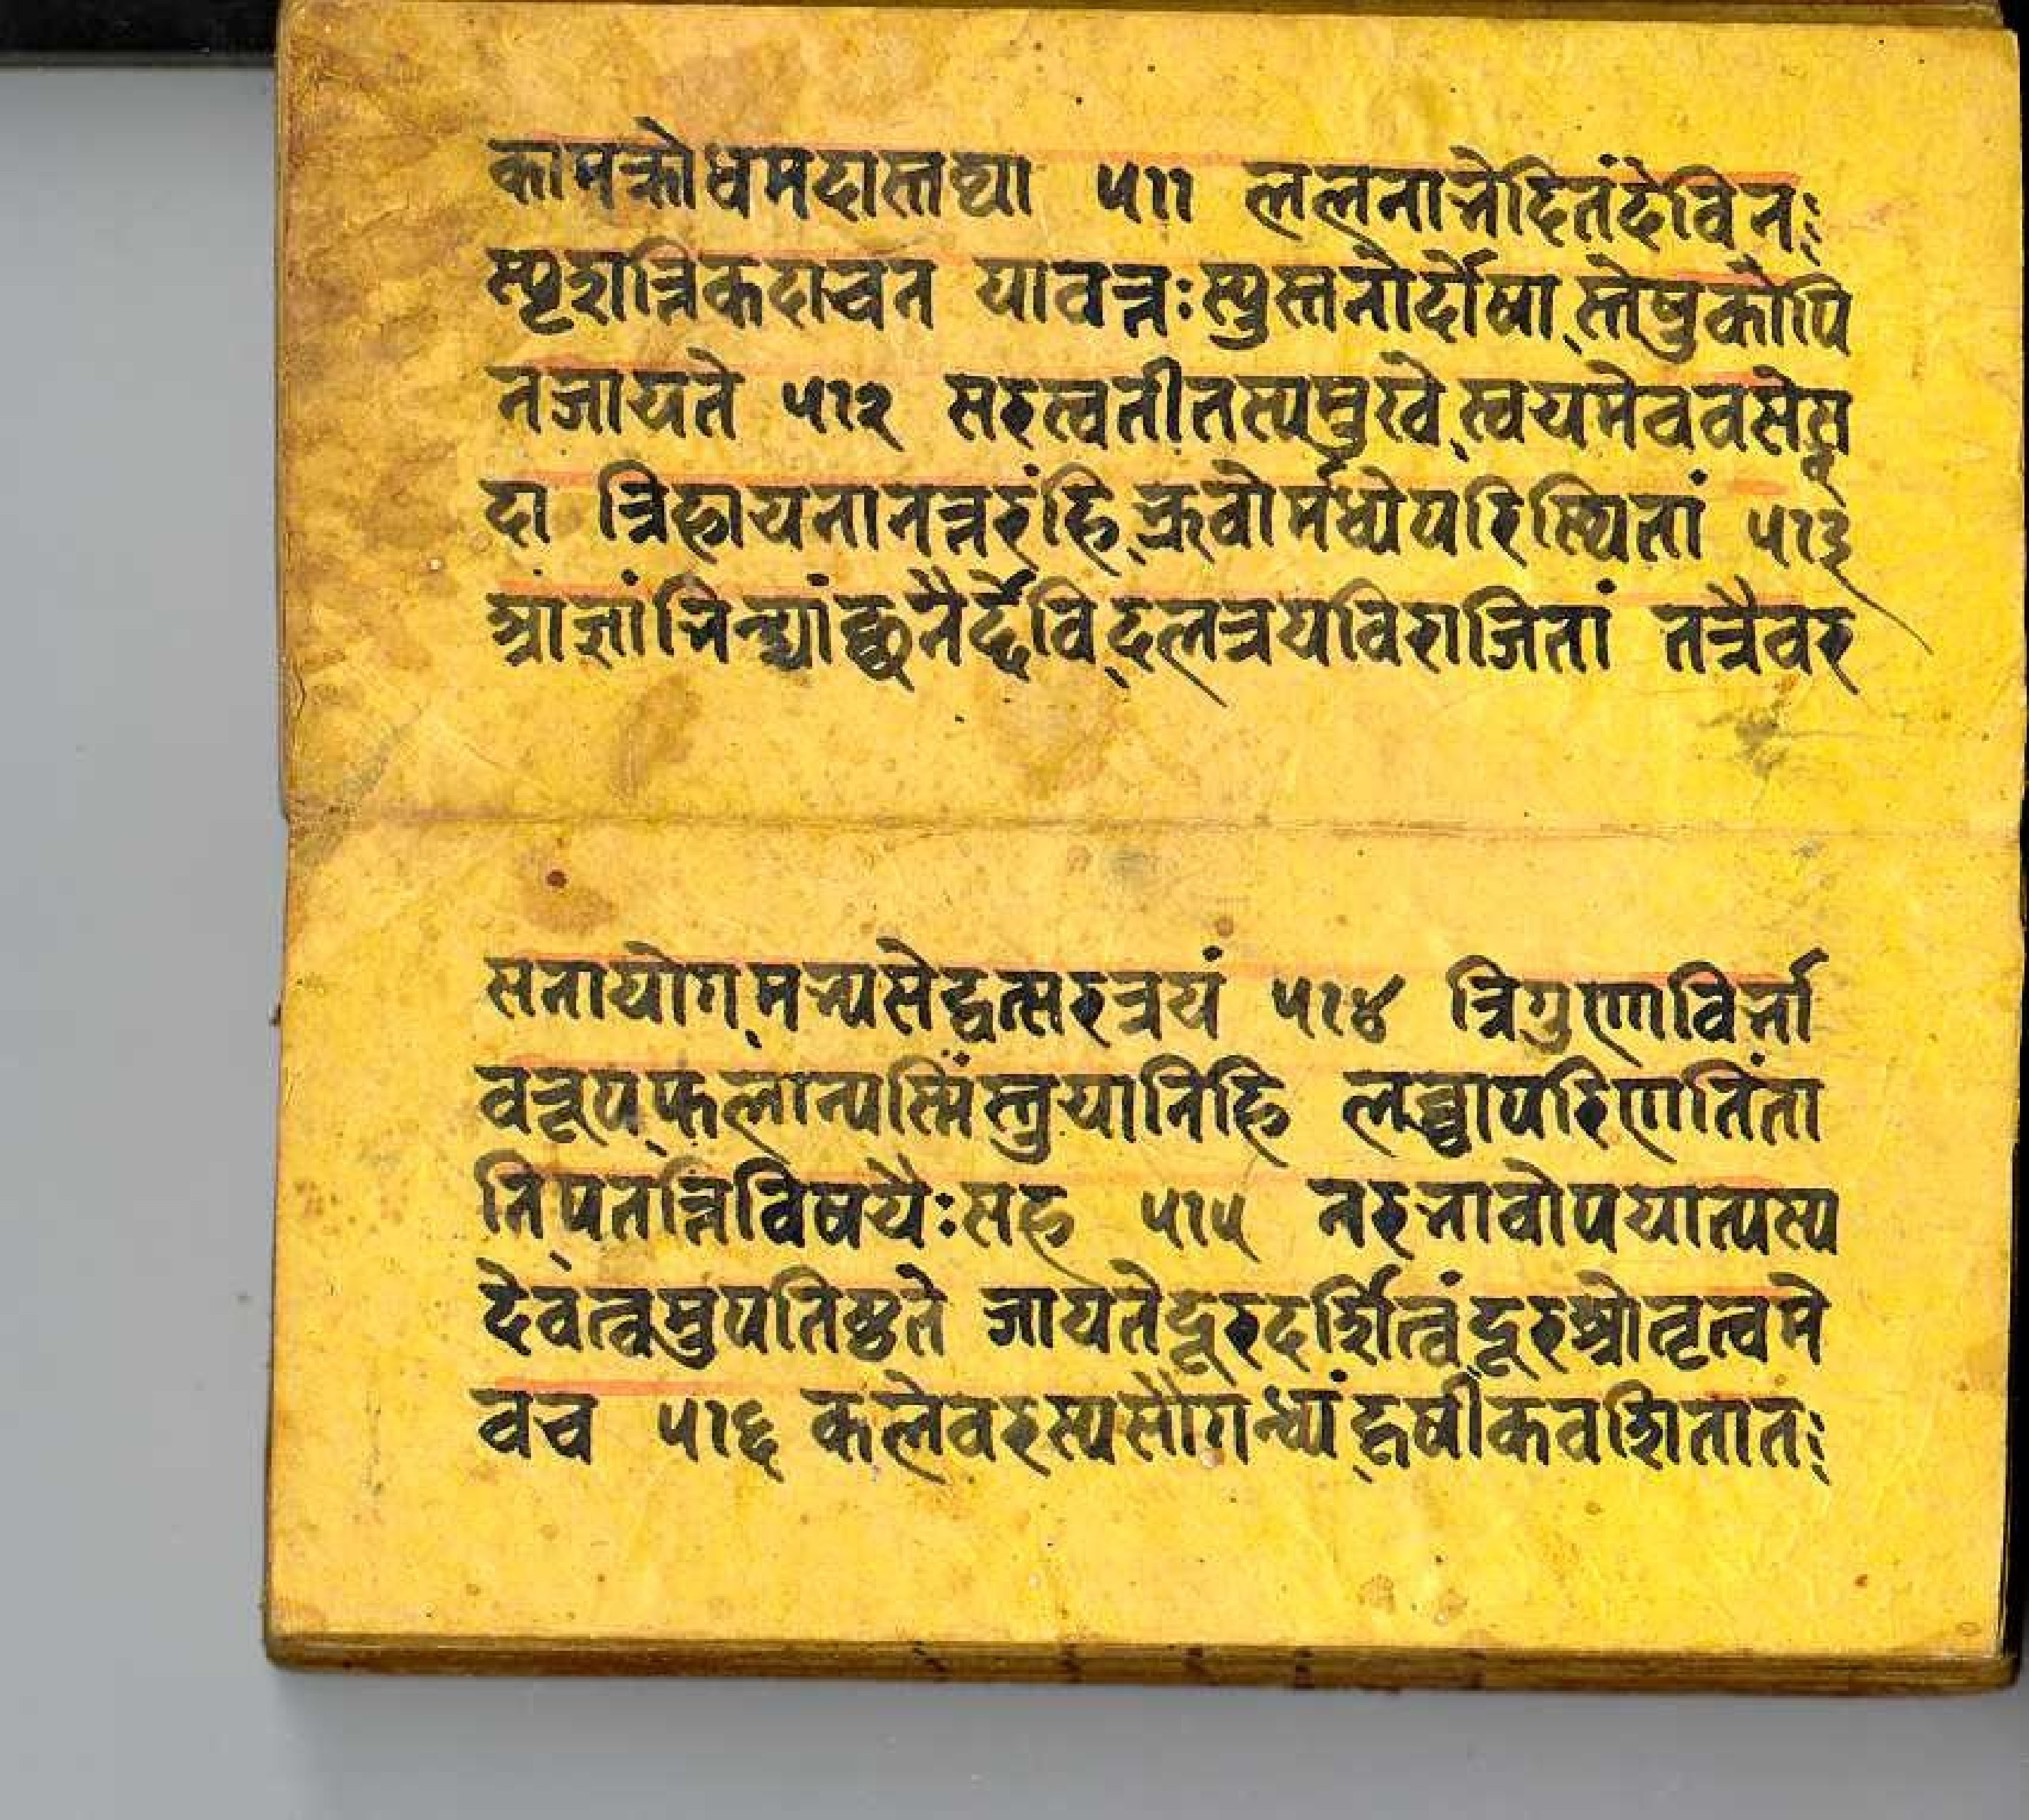 कामक्रोधमदास्तथा ५११ ललनाभेदितंदेविन
स्पृशन्तिकदाचन यावन्नःस्युस्तनोर्दोषा स्तेषुकोपि
नजायते ५१२ सरस्वतीतस्यमुखे स्वयमेववसेत्स
दा त्रिहायनानन्तरंहि भ्रुवोर्मध्येपरिस्थितां ५१३
आज्ञांभिन्द्याच्छनैर्द्देवि दलत्रयविराजितां तत्रैवर
सनायोग मभ्यसेद्वत्सरत्रयं ५१४ त्रिगुणाविर्भा
वरूप फलान्यस्मिंस्तुयानिहि लब्ध्वापरिणतिंता
नि पतन्तिविषयैःसह ५१५ नरभावोपयात्यस्य
देवत्वमुपतिष्ठते जायतेदूरदर्शित्वं दूरश्रोतृत्वमे
वच ५१६ कलेवरस्यसौगन्ध्यं हृषीकवशितातः